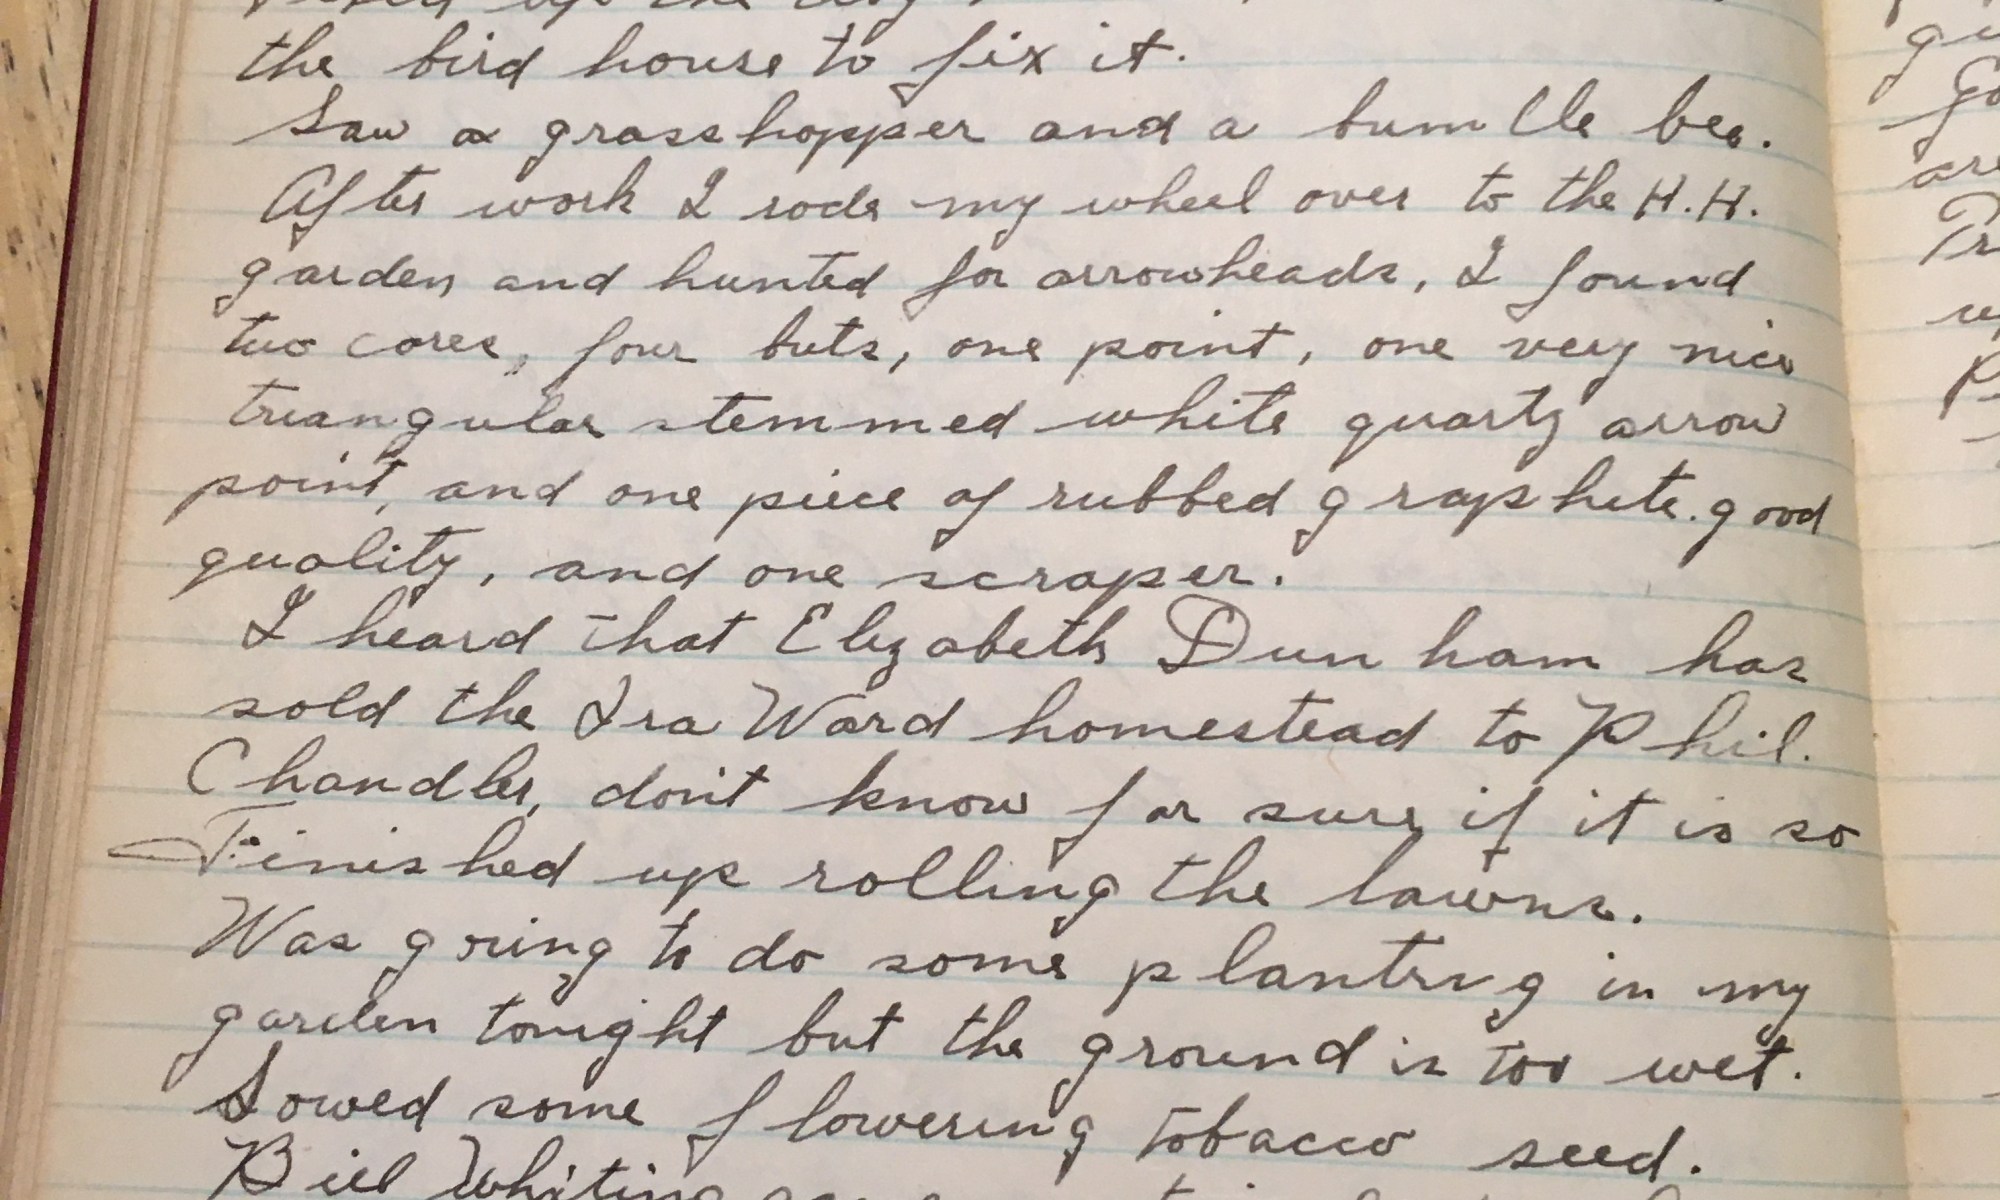 up the
the bird house to fix it.
Saw a grasshopper and a bumble bee.
After work I rode my wheel over to the H.H.
garden and hunted for arrowheads, I found
two cores, four buts, one point, one very nice
triangular stemmed white quartz arrow
point, and one piece of rubbed graphite. good
quality, and one scraper.
I heard that Elizabeth Dunham has
sold the Ira Ward homestead to Phil.
Chandler, don't know for sure if it is so
Finished up rolling the lawns.
Was going to do some planting in my
garden tonight but the ground is too wet.
Sowed some flowering tobacco seed.
Bill Whiting